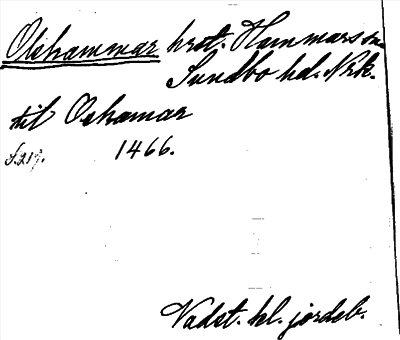 Olshammar hrst. Hammars sn
Sundbo hd. Nrk.
til Oshamar
f. 217. 1466.
Vadst. kl. jordeb.